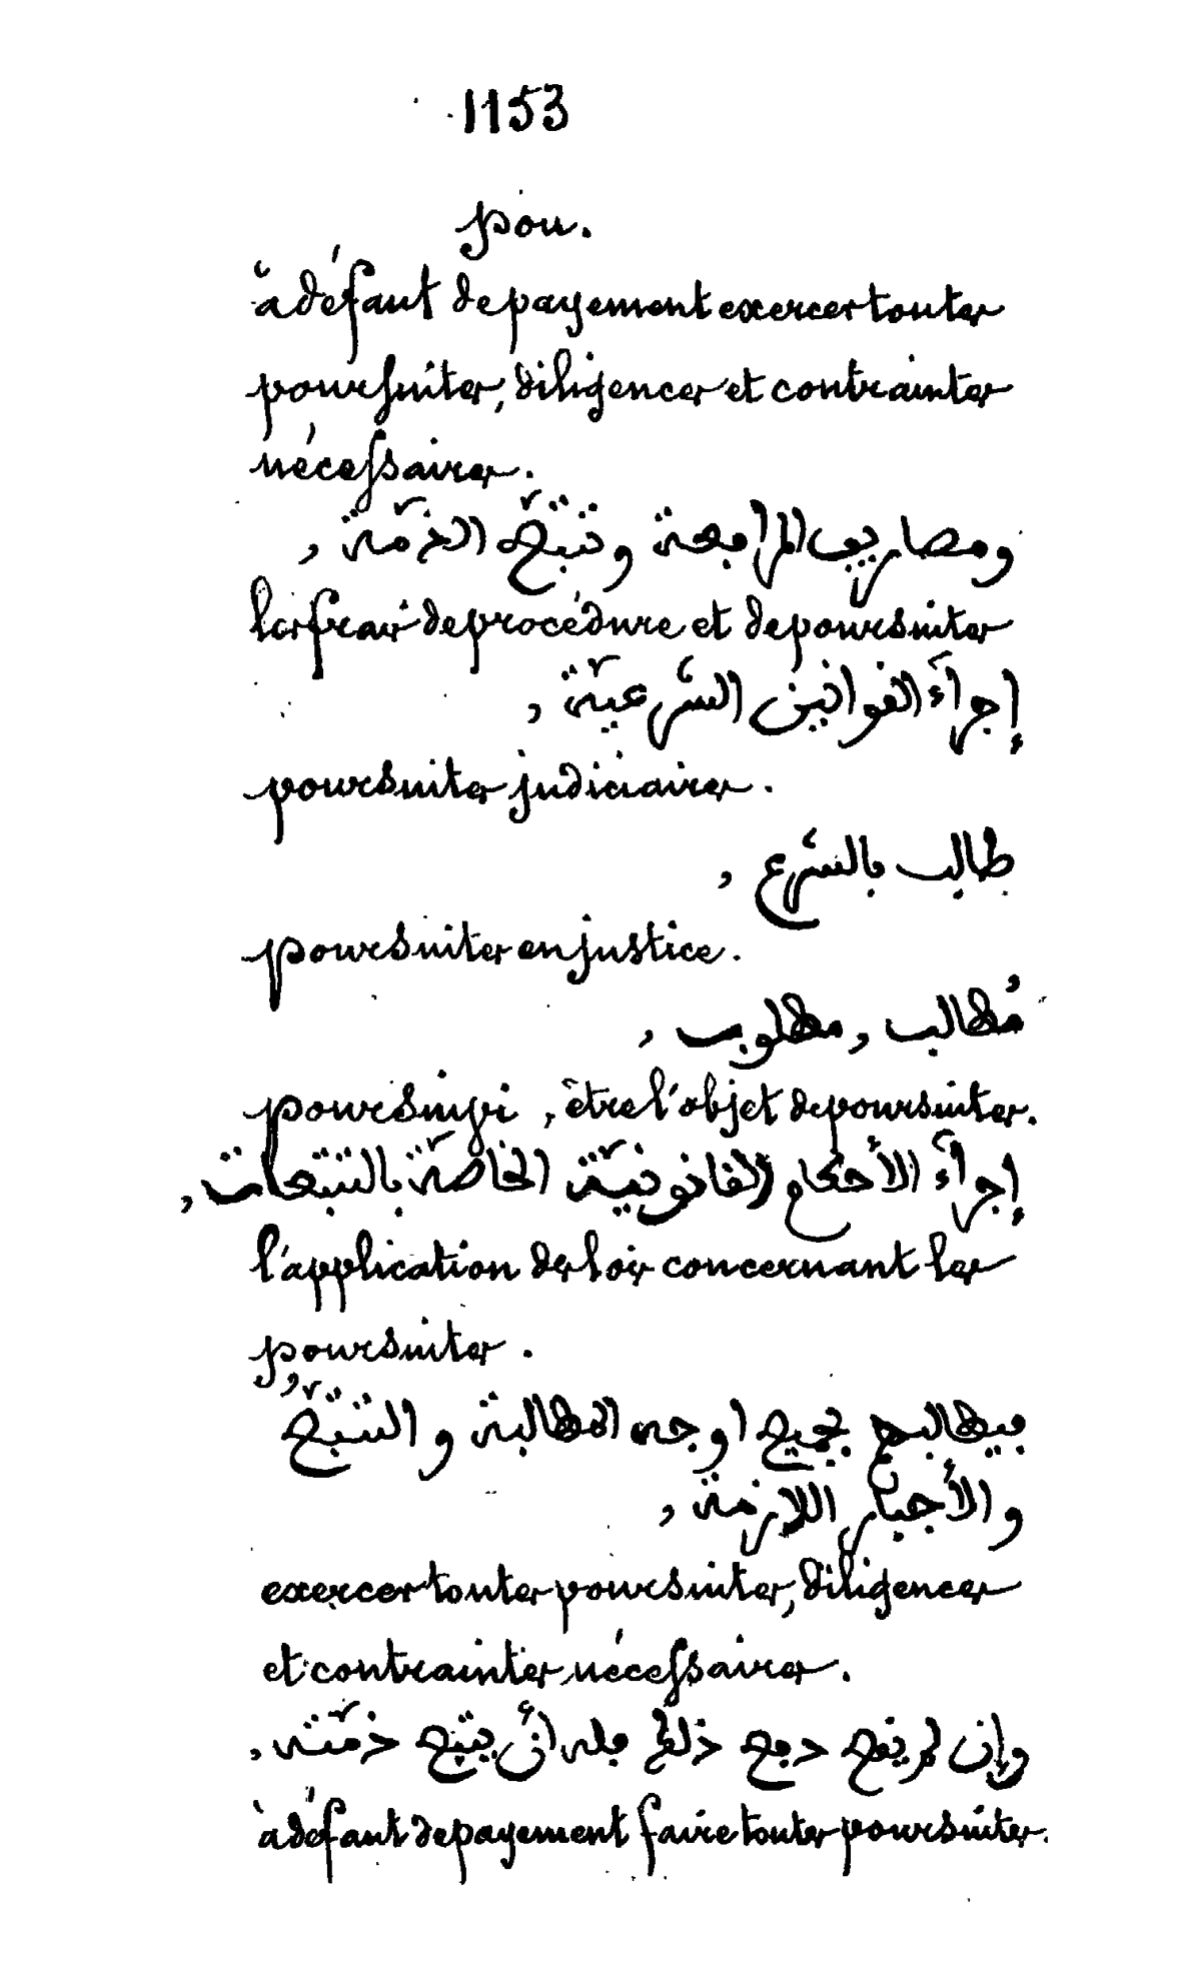 1153
pou.
à défaut de payement exercer toutes
poursuites, diligences et contraintes
nécessaires.
ومصاريف المرافعة وتتبّع الذمّة ,
les frais de procédure et de poursuites
إجرآء القوانين الشرعيّة ,
poursuites judiciaires.
طالب بالشرع ,
poursuites en justice.
مُطالب , مطلوب ,
poursuivi, être l'objet de poursuites.
إجرآء الأحكام القانونيّة الخاصّة بالتتبّعات ,
l'application des lois concernant les
poursuites.
فيطالبهم بجميع اوجه المطالبة والتتبّع
والأجبار اللازمة ,
exercer toutes poursuites, diligences
et contraintes nécessaires.
وإن لم يقع دفع ذلك فله أن يتتبّع ذمّته ,
à défaut de payement faire toutes poursuites.